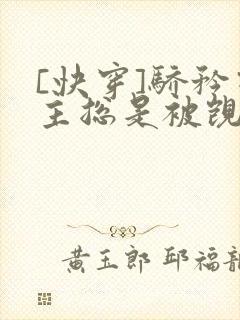 [快穿]骄矜
主总是被觊
黄玉郎 邱福龍